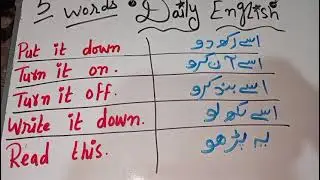 5 words • Daily English
Put it down اسے رکھ دو
Turn it on. اسے آن کرو
Turn it off. اسے بند کرو
Write it down. اسے لکھ لو
Read this. یہ پڑھو